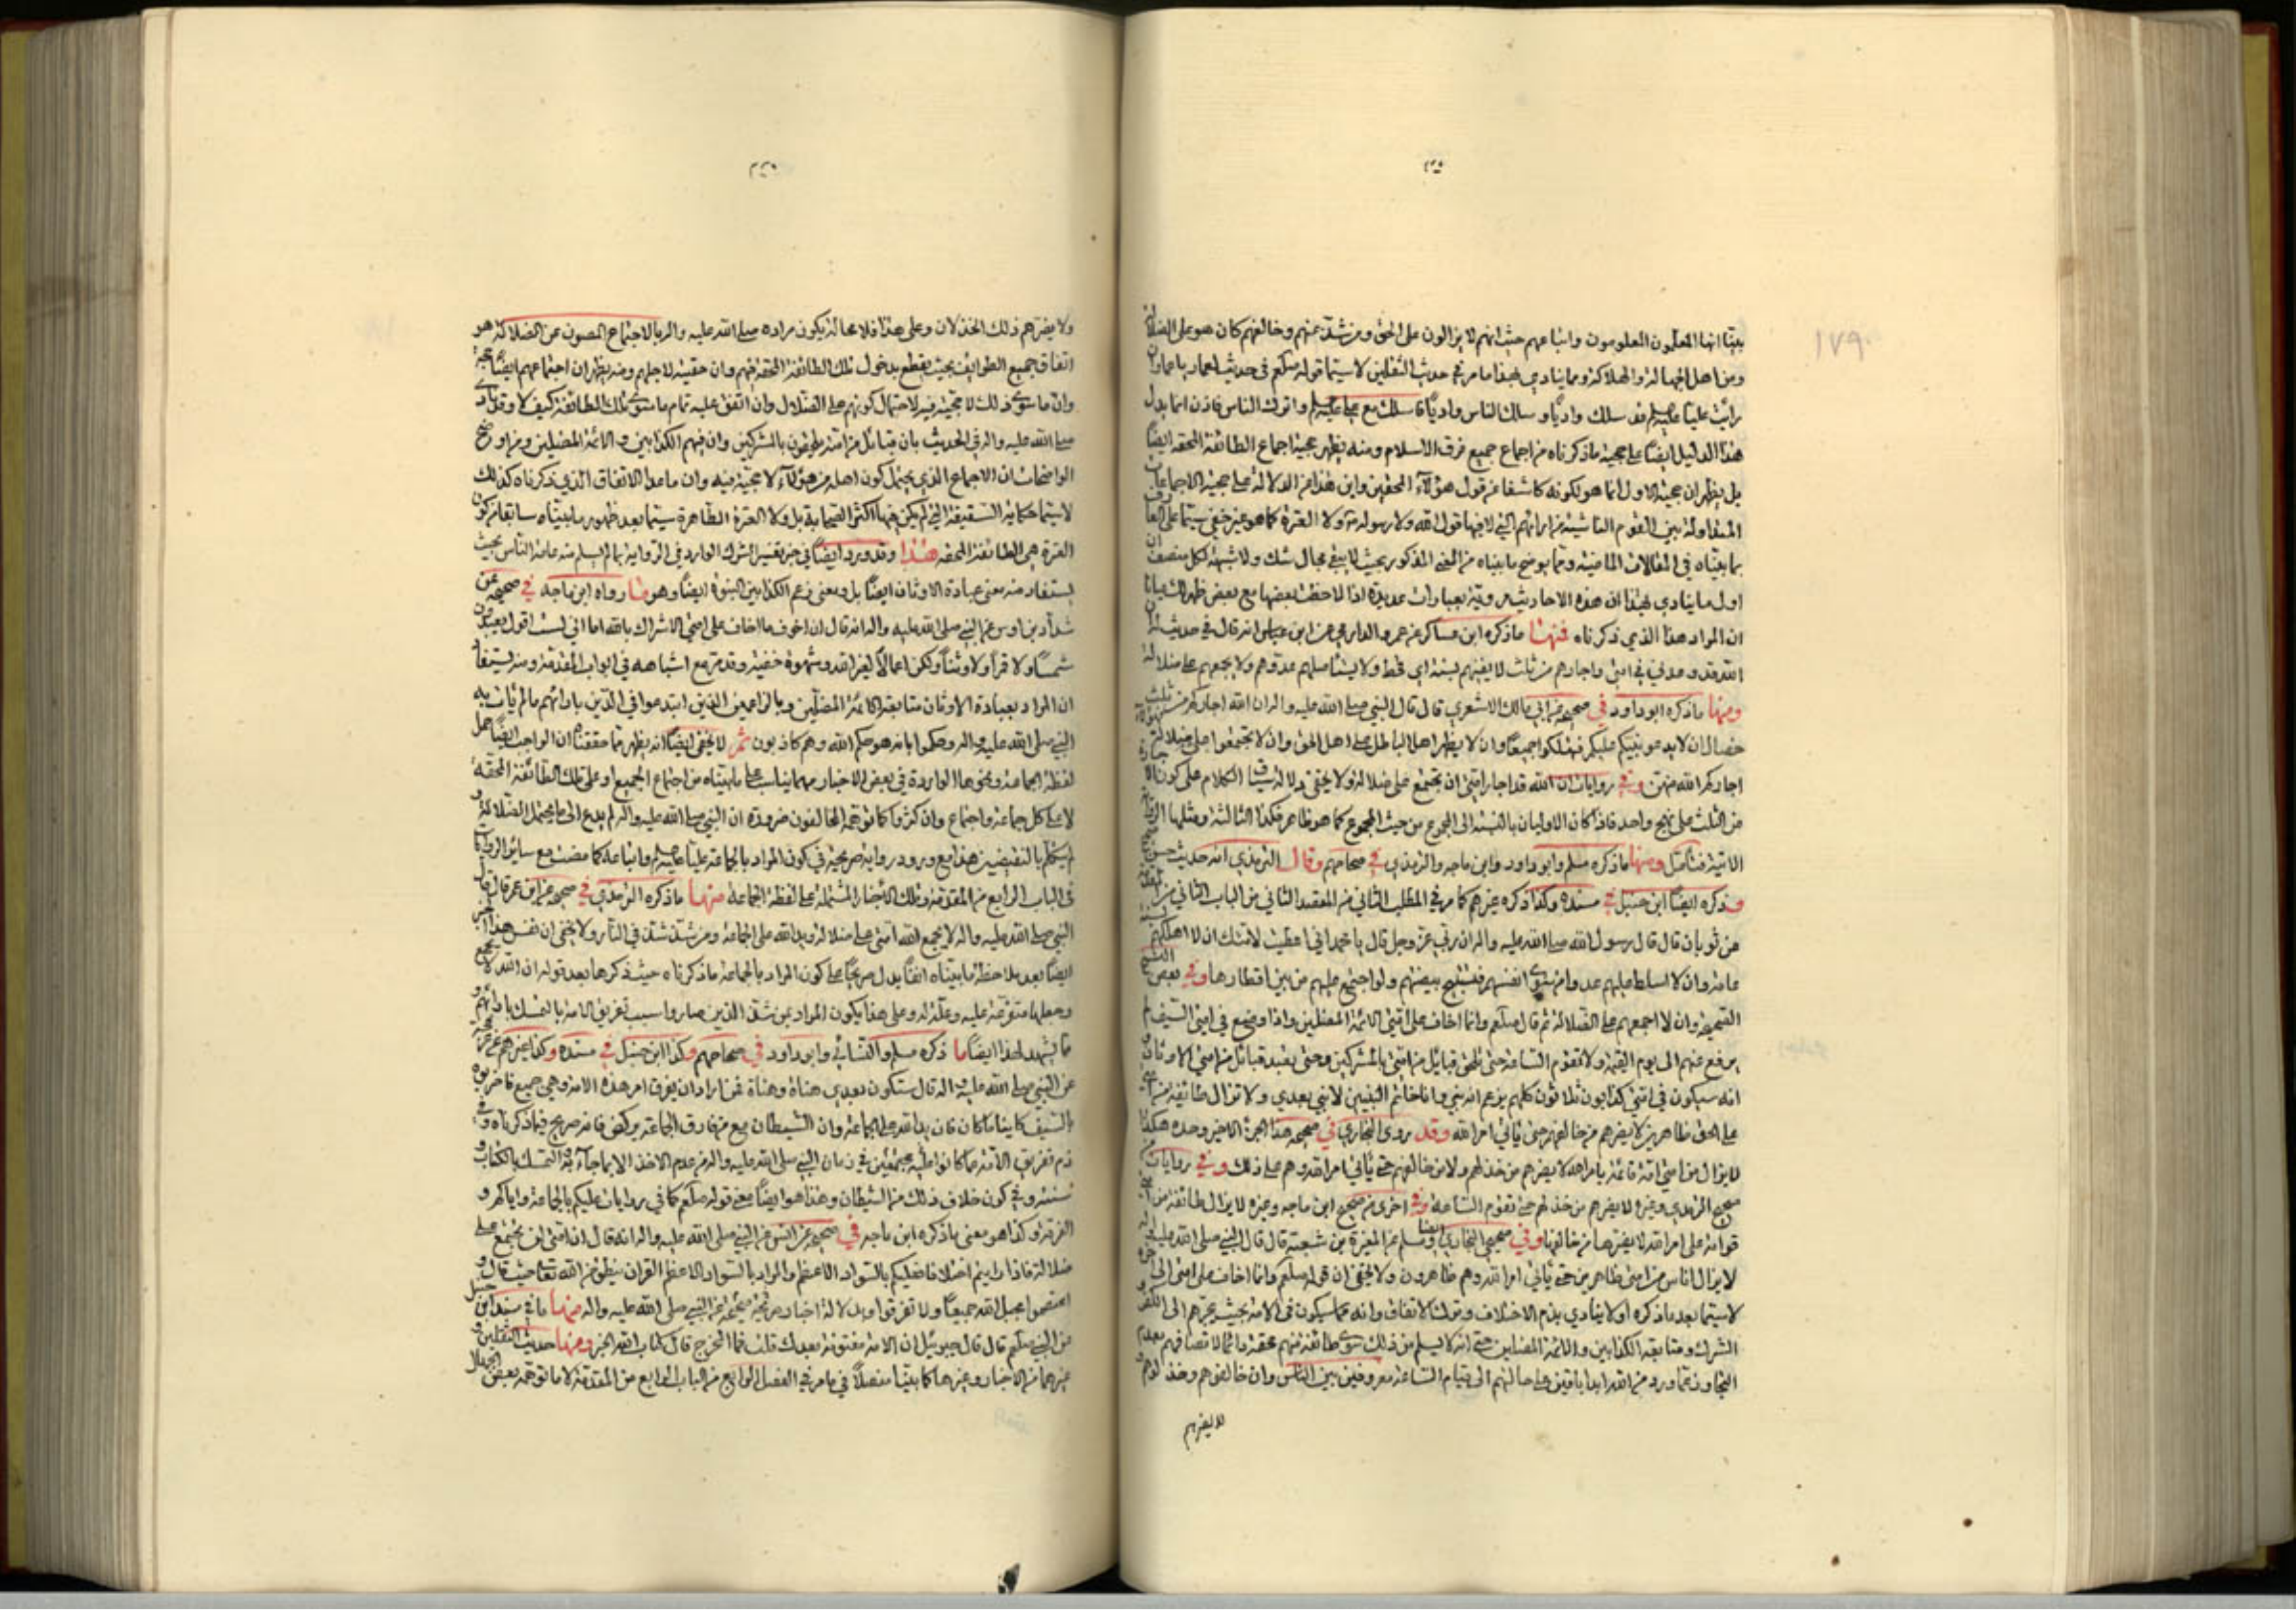 ٣٥٩
١٧٩
بينا انها المعلمون المعلومون واتباعهم حيث انهم لا يزالون على الحق ومن شذ عنهم وخالفهم كان هو على الضلالة
ومن اهل الجهالة والهلاكة ومما ينادي بهذا ما مر في حديث الثقلين لا سيما قوله صلعم في حديث لعمار يا عمار ان
رايت عليا عليه السلم قد سلك واديا وسلك الناس واديا فاسلك مع علي عليه السلم واترك الناس فاذن انما يدل
هذا الدليل ايضا على حجية ما ذكرناه من اجماع جميع فرق الاسلام ومنه يظهر حجية اجماع الطائفة المحقة ايضا
بل يظهر ان حجية الاول انما هو لكونه كاشفا عن قول هؤلاء المحقين واين هذا من الدلالة على حجية الاجماعات
المتداولة بين القوم الناشية من ارائهم التي لا فيها قول الله ولا رسوله ولا العترة كما هو غير خفي سيما على العارف
بما بيناه في المقالات الماضية ومما يوضح ما بيناه من المعنى المذكور بحيث لا يبقى مجال شك ولا شبهة لكل منصف ان
اول ما ينادي بهذا ان هذه الاحاديث مروية بعبارات عديدة اذا لاحظت بعضها مع بعض ظهر لك عيانا
ان المراد هذا الذي ذكرناه فمنها ما ذكره ابن عساكر عن عمرو والدارمي عن ابن عباس انه قال في حديث ان
الله قد وعدني في امتي واجارهم من ثلث لا يعمهم بسنة اي قحط ولا يستاصلهم عدوهم ولا يجمعهم على ضلالة
ومنها ما ذكره ابو داود في صحيحه عن ابي مالك الاشعري قال قال النبي صلى الله عليه واله ان الله اجاركم من ثلث
خصال ان لا يدعو نبيكم عليكم فتهلكوا جميعا وان لا يظهر اهل الباطل على اهل الحق وان لا تجتمعوا على ضلالة
اجاركم الله منهن وفي روايات ان الله قد اجار امتي ان تجتمع على ضلالة ولا يخفى دلالة سياق الكلام على كون
من الثلث على نهج واحد فاذا كان الاوليان بالنسبة الى المجموع من حيث المجموع كما هو ظاهر فكذا الثالثة ومثلها الرواية
الاتية فتأمل ومنها ما ذكره مسلم وابو داود وابن ماجه والترمذي في صحاحهم وقال الترمذي انه حديث حسن
وذكره ايضا ابن حنبل في مسنده وكذا ذكره غيرهم كما مر في المطلب الثاني من المقصد الثاني من الباب الثاني من المقدمة
عن ثوبان قال قال رسول الله صلى الله عليه واله ان ربي عز وجل قال يا محمد اني اعطيت لامتك ان لا اهلكهم بسنة
عامة وان لا اسلط عليهم عدوا من سوى انفسهم فيستبيح بيضتهم ولو اجتمع عليهم من بين اقطارها وفي بعض النسخ
الصحيحة وان لا اجمعهم على الضلالة ثم قال صلعم وانما اخاف على امتي الائمة المضلين واذا وضع في امتي السيف لم
يرفع عنهم الى يوم القيمة ولا تقوم الساعة حتى تلحق قبايل من امتي بالمشركين وحتى يعبد قبائل من امتي الاوثان و
انه سيكون في امتي كذابون ثلاثون كلهم يزعم انه نبي وانا خاتم النبيين لا نبي بعدي ولا تزال طائفة من امتي
على الحق ظاهرين لا يضرهم من خالفهم حتى يأتي امر الله وقد روى البخاري في صحيحه هذا الجزء الاخير وحده هكذا
لا يزال من امتي امة قائمة بامر الله لا يضرهم من خذلهم ولا من خالفهم حتى يأتي امر الله وهم على ذلك وفي روايات من
صحيح الترمذي وغيره لا يضرهم من خذلهم حتى تقوم الساعة وفي اخرى من صحيح ابن ماجه وغيره لا يزال طائفة من امتي
قوامة على امر الله لا يضرها من خالفها وفي صحيحي البخاري ايضا ومسلم عن المغيرة بن شعبة قال قال النبي صلى الله عليه واله
لا يزال اناس من امتي ظاهرين حتى يأتي امر الله وهم ظاهرون ولا يخفى ان قوله صلعم وانما اخاف على امتي الى
لا سيما بعد ما ذكره اولا ينادي بذم الاختلاف وترك الاتفاق وانه مما سيكون في الامة بحيث يجرهم الى الكفر و
الشرك ومتابعة الكذابين والائمة المضلين حتى انه لا يسلم من ذلك سوى طائفة منهم محقة دائما لاتصافهم بعدم
التجاوز عما ورد من الله ابدا باقين على حالهم الى قيام الساعة معروفين بين الناس وان خالفوهم وخذلوهم و
لا يضرهم
٣٦٠
ولا يضرهم ذلك الخذلان وعلى هذا فلا محالة يكون مراده صلى الله عليه واله بالاجتماع المصون عن الضلالة هو
اتفاق جميع الطوايف بحيث يقطع بدخول تلك الطائفة المحقة فيهم وان حقيته لاجلهم ومنه يظهر ان اجتماعهم ايضا حجة
وان ما سوى ذلك لا حجية فيه لاحتمال كونهم على الضلال وان اتفق عليه تمام ما سوى تلك الطائفة كيف لا وقد نادى
صلى الله عليه واله في الحديث بان قبائل من امته يلحقون بالمشركين وان فيهم الكذابين والائمة المضلين ومن اوضح
الواضحات ان الاجماع الذي يحتمل كون اهله من هؤلاء لا حجية فيه وان ما عدا الاتفاق الذي ذكرناه كذلك
لا سيما حكاية السقيفة التي لم يكن فيها اكثر الصحابة بل ولا العترة الطاهرة سيما بعد ظهور ما بيناه سابقا من كون
العترة هي الطائفة المحقة هذا وقد ورد ايضا في خبر تفسير الشرك الوارد في الرواية بما لم يسلم منه عامة الناس بحيث
يستفاد منه معنى عبادة الاوثان ايضا بل ومعنى زعم الكذابين النبوة ايضا وهو ما رواه ابن ماجه في صحيحه عن
شداد بن اوس عن النبي صلى الله عليه واله انه قال ان اخوف ما اخاف على امتي الاشراك بالله اما اني لست اقول يعبدون
شمسا ولا قمرا ولا وثنا ولكن اعمالا لغير الله وشهوة خفية وقد مر مع اشباهه في ابواب المقدمة ومنه يستفاد
ان المراد بعبادة الاوثان متابعة الائمة المضلين وبالزاعمين الذين ابتدعوا في الدين بارائهم ما لم يأت به
النبي صلى الله عليه واله وحكموا بانه هو حكم الله وهم كاذبون ثم لا يخفى ايضا انه يظهر مما حققناه ان الواجب ايضا حمل
لفظة الجماعة ونحوها الواردة في بعض الاخبار مهما يناسب على ما بيناه من اجتماع الجميع او على تلك الطائفة المحقة
لا على كل جماعة واجتماع وان كثروا كما توهمه المخالفون ضرورة ان النبي صلى الله عليه واله لم يدع الى ما يحتمل الضلالة و
لم يتكلم بالنقيضين هذا مع ورود رواية صريحة في كون المراد بالجماعة عليا عليه السلم واتباعه كما مضت مع سائر الروايات
في الباب الرابع من المقدمة وتلك الاخبار المشتملة على لفظة الجماعة منها ما ذكره الترمذي في صحيحه عن ابن عمر قال قال
النبي صلى الله عليه واله لا يجمع الله امتي على ضلالة ويد الله على الجماعة ومن شذ شذ في النار ولا يخفى ان نفس هذا الخبر
ايضا بعد ملاحظة ما بيناه انفا يدل صريحا على كون المراد بالجماعة ما ذكرناه حيث ذكرها بعد قوله ان الله لا يجمع
وجعلها متفرعة عليه وعلة له وعلى هذا يكون المراد بمن شذ الذين صاروا سبب تفريق الامة بالتمسك بارائهم و
مما يشهد لهذا ايضا ما ذكره مسلم والنسائي وابو داود في صحاحهم وكذا ابن حنبل في مسنده وكذا غيرهم عن عرفجة
عن النبي صلى الله عليه واله قال ستكون بعدي هناة وهناة فمن اراد ان يفرق امر هذه الامة وهي جميع فاضربوه
بالسيف كاينا ما كان فان يد الله على الجماعة وان الشيطان مع من فارق الجماعة يركض فانه صريح فيما ذكرناه وفي
ذم تفريق الامة عما كانوا عليه مجتمعين في زمان النبي صلى الله عليه واله من عدم الاخذ الا بما جاء به والتمسك بالكتاب و
سنته وفي كون خلاف ذلك من الشيطان وهذا هو ايضا معنى قوله صلعم كما في روايات عليكم بالجماعة واياكم و
الفرقة وكذا هو معنى ما ذكره ابن ماجه في صحيحه عن انس عن النبي صلى الله عليه واله انه قال ان امتي لن تجتمع على
ضلالة فاذا رايتم اختلافا فعليكم بالسواد الاعظم والمراد بالسواد الاعظم القران بنطق من الله تعالى حيث قال و
اعتصموا بحبل الله جميعا ولا تفرقوا وبدلالة اخبار صريحة صحيحة عن النبي صلى الله عليه واله منها ما في مسند ابن حنبل
عن النبي صلعم قال قال جبرئيل ان الامة مفتونة بعدك قلت فما المخرج قال كتاب الله الخبر ومنها حديث الثقلين و
غيرهما من الاخبار وغيرها كما بينا مفصلا فيما مر في الفصل الرابع من الباب الرابع من المقدمة لا ما توهمه بعض الجهال